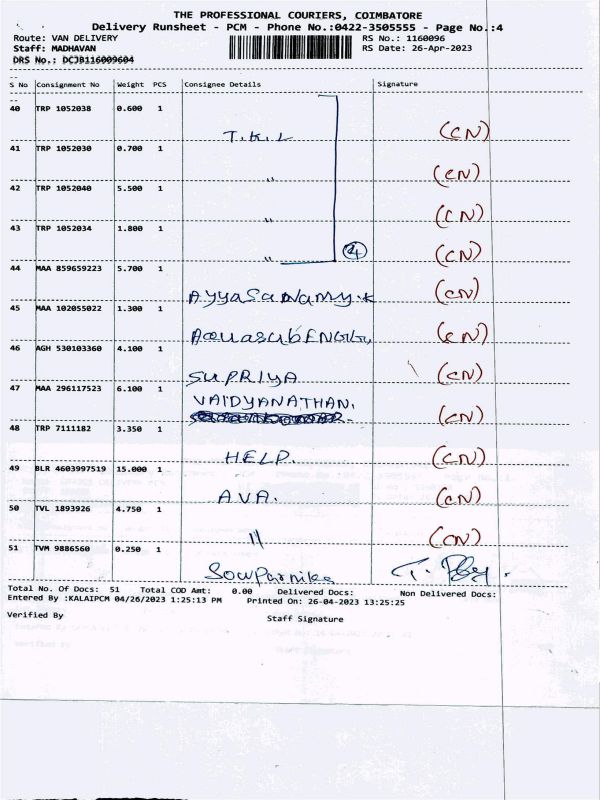 THE PROFESSIONAL COURIERS, COIMBATORE
Delivery Runsheet - PCM - Phone No.:0422-3505555 - Page No.:4
Route: VAN DELIVERY RS No.: 1160096
Staff: MADHAVAN RS Date: 26-Apr-2023
DRS No.: DCJB116009604
S No Consignment No Weight PCS Consignee Details Signature
40 TRP 1052038 0.600 1
T.K.L (CN)
41 TRP 1052030 0.700 1
" (CN)
42 TRP 1052040 5.500 1
" (CN)
43 TRP 1052034 1.800 1
" (4) (CN)
44 MAA 859659223 5.700 1
Ayyasamamy.k (CN)
45 MAA 102055022 1.300 1
(CN)
46 AGH 530103360 4.100 1
SUPRIYA (CN)
47 MAA 296117523 6.100 1
VAIDYANATHAN. (CN)
48 TRP 7111182 3.350 1
HELP. (CN)
49 BLR 4603997519 15.000 1
AVA. (CN)
50 TVL 1893926 4.750 1
11 (CN)
51 TVM 9886560 0.250 1
Sowparnika
Total No. Of Docs: 51 Total COD Amt: 0.00 Delivered Docs: Non Delivered Docs:
Entered By :KALAIPCM 04/26/2023 1:25:13 PM Printed On: 26-04-2023 13:25:25
Verified By Staff Signature